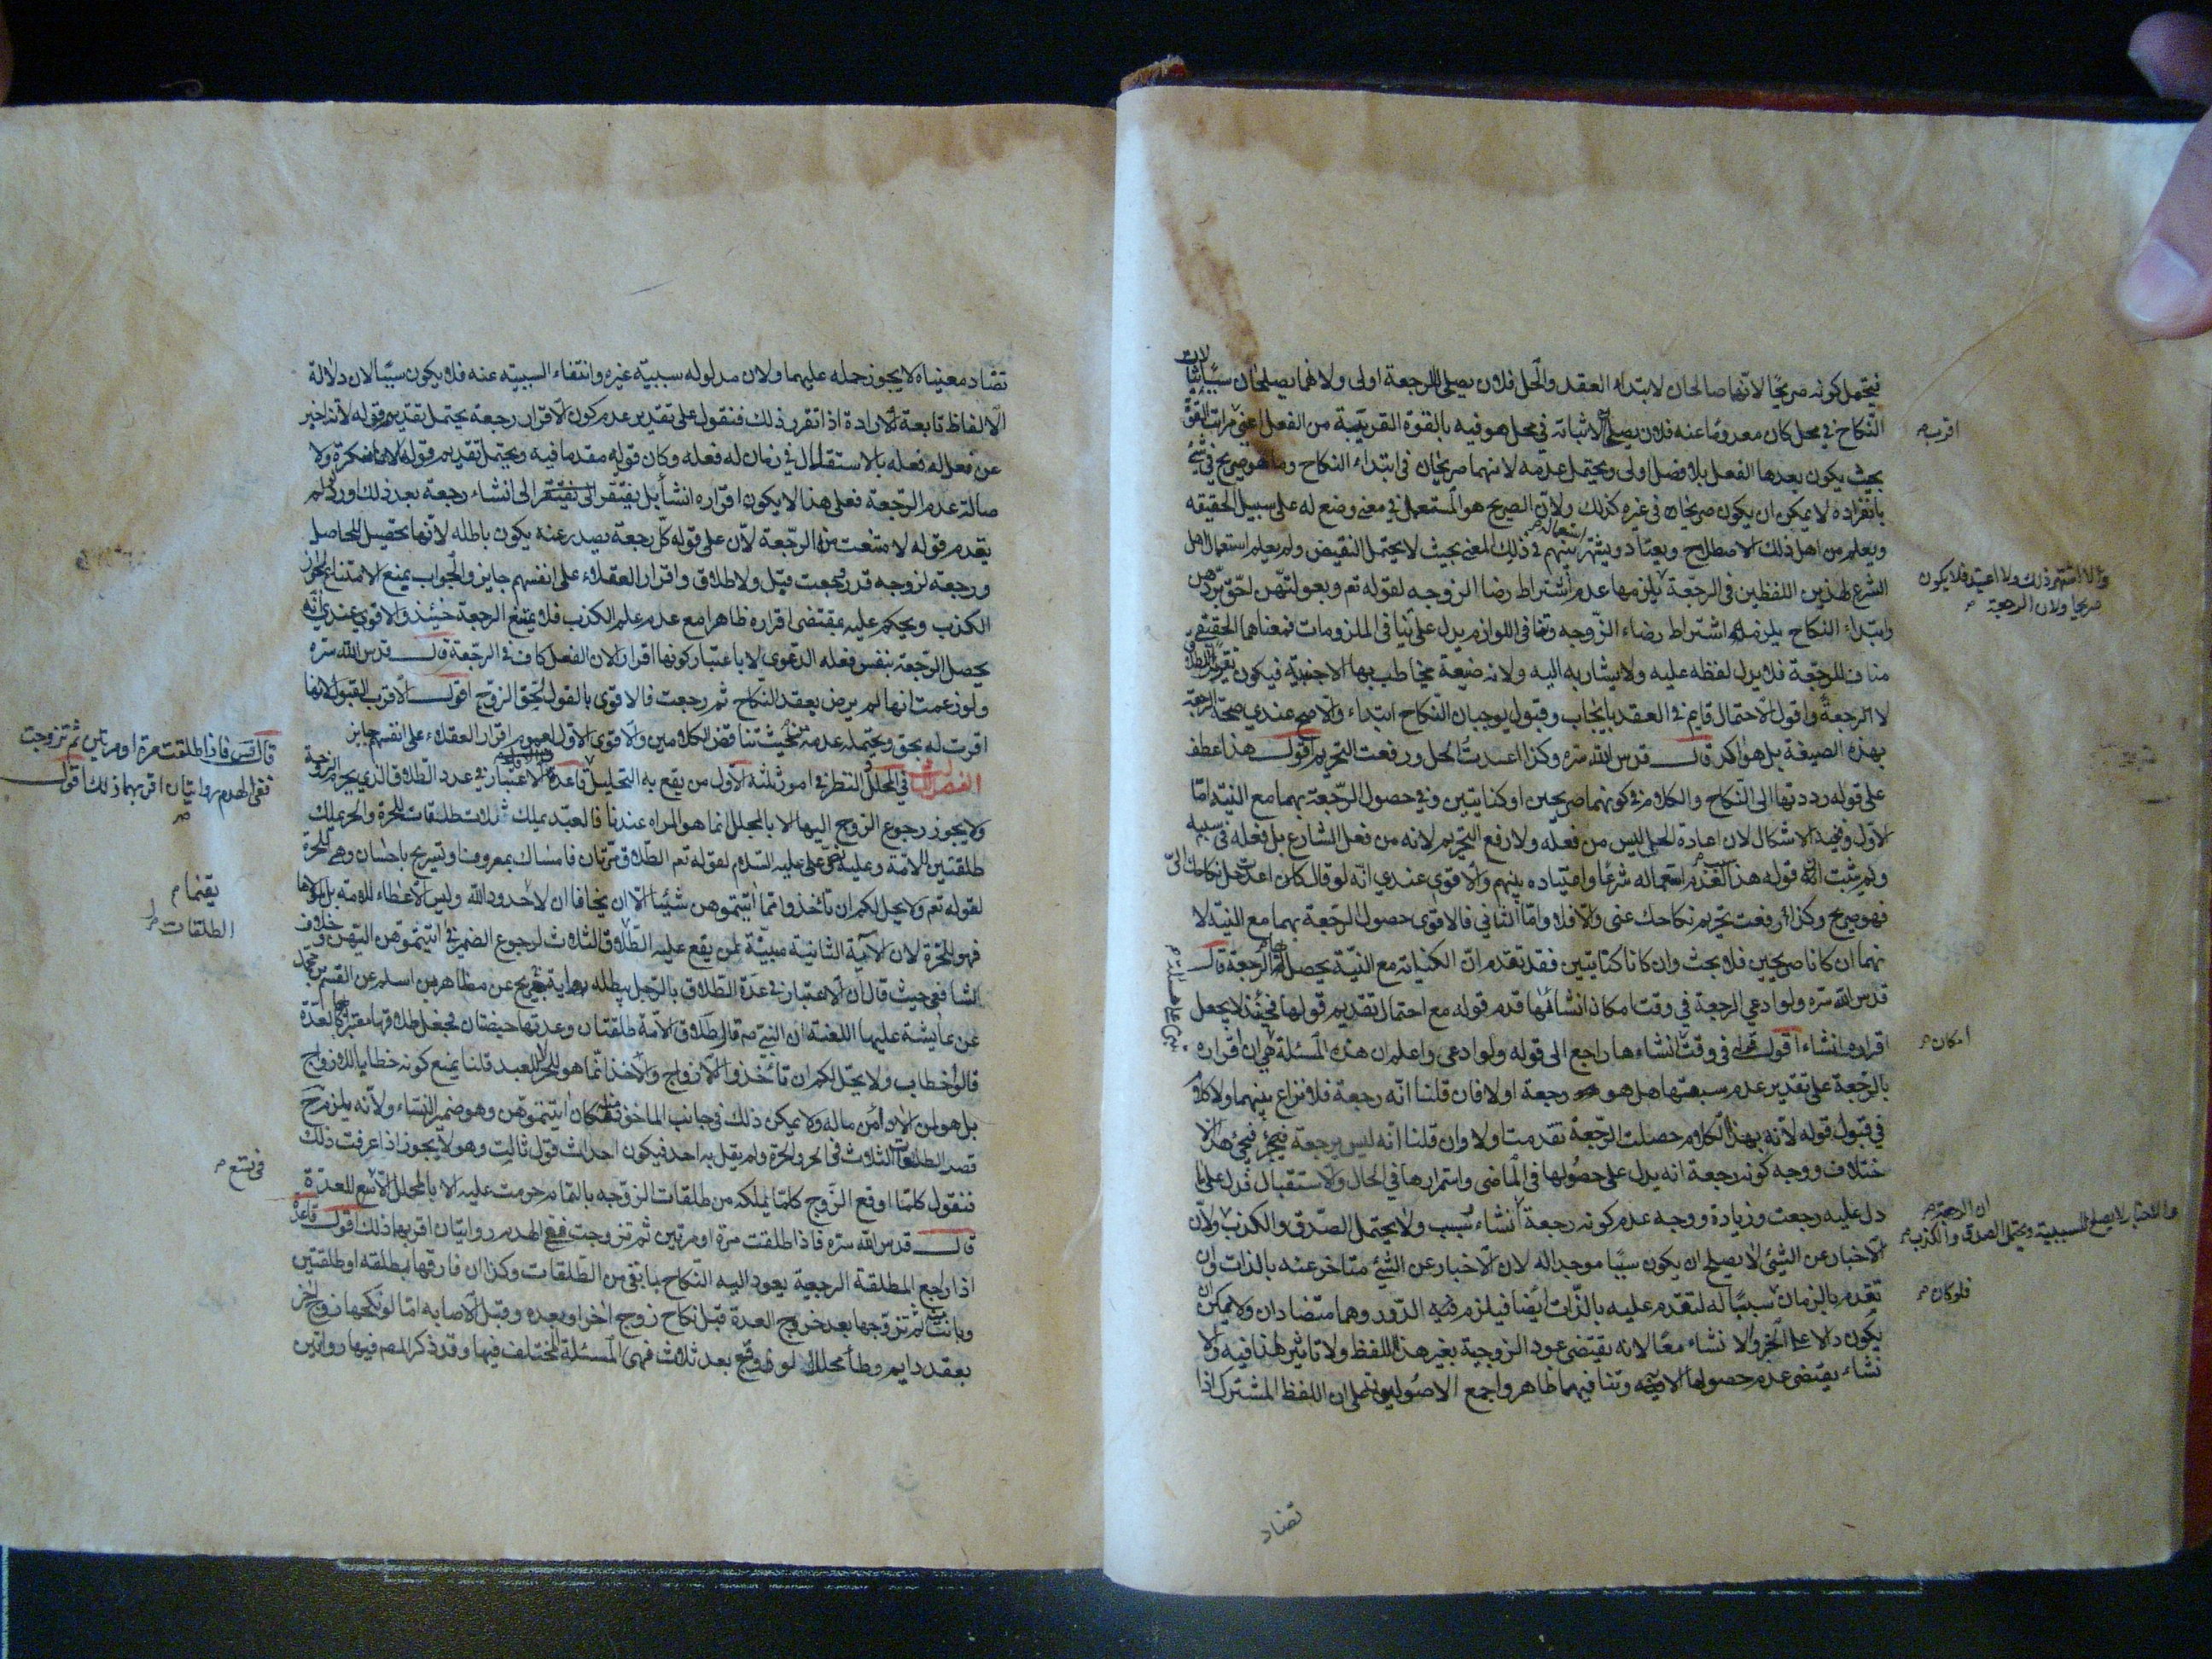 فيحتمل كونه صريحًا لانهما صالحان لابتداء العقد والحل فلان يصلح للرجعة اولى ولانهما يصلحان سببًا لاثبات
النكاح في محل كان معدومًا عنه فلان يصلح لاثباته في محل هو فيه بالقوة القريبة من الفعل اعنى مراتب القوة
بحيث يكون بعدها الفعل بلا فصل اولى ويحتمل عدمه لانهما صريحان في ابتداء النكاح وما هو صريح في شئ
بانفراده لا يمكن ان يكون صريحا في غيره كذلك ولان الصريح هو المستعمل في معنى وضع له على سبيل الحقيقه
ويعلم من اهل ذلك الاصطلاح ويعتاد ويشتهر بينهم في ذلك المعنى بحيث لا يحتمل النقيض ولم يعلم استعمال اهل
الشرع لهذين اللفظين في الرجعة يلزمها عدم اشتراط رضا الزوجه لقوله تعم وبعولتهن احق بردهن
وابتداء النكاح يلزمه اشتراط رضاء الزوجه وتنافى اللوازم يدل على تنافى الملزومات فمعناها الحقيقي
مناف للرجعة فلا يدل لفظه عليه ولا يشار به اليه ولانه صيغة يخاطب بها الاجنبية فيكون
لا الرجعة واقول الاحتمال قايم في العقد بايجاب وقبول يوجبان النكاح ابتداء والاصح عندي صحة الرجعة
بهذه الصيغة بل هو اكد قال قدس الله سره وكذا اعدت الحل ورفعت التحريم اقول هذا عطف
على قوله رددتها الى النكاح والكلام في كونهما صريحين او كنايتين وفي حصول الرجعة بهما مع النية اما
الاول ففيه الاشكال لان اعادة الحل ليس من فعله ولا رفع التحريم لانه من فعل الشارع بل فعله في سببه
ولم يثبت استعماله شرعًا واعتياده بينهم والاقوى عندي انه لو قال كان اعدت حل نكاحك الى
فهو صريح وكذا رفعت تحريم نكاحك عنى والا فلا واما الثاني فالاقوى حصول الرجعة بهما مع النية لا
نهما ان كانا صريحين فلا بحث وان كانا كنايتين فقد تقدم ان الكناية مع النية يحصل بها الرجعة قال
قدس الله سره ولو ادعى الرجعة في وقت امكان انشائها قدم قوله مع احتمال تقديم قولها فحينئذ لا يجعل
اقراره انشاء اقول قوله في وقت انشاءها راجع الى قوله ولو ادعى واعلم ان هذه المسئلة هي ان اقراره
بالرجعة على تقدير عدم سبقها هل هو رجعة اولا فان قلنا انه رجعة فلا نزاع بينهما ولا كلام
في قبول قوله لانه بهذا الكلام حصلت الرجعة تقدمت اولا وان قلنا انه ليس برجعة
ختلاف ووجه كونه رجعة انه يدل على حصولها في الماضى واستمرارها في الحال والاستقبال فدل على ما
دل عليه رجعت وزيادة ووجه عدم كونه رجعة انشاء سبب ولا يحتمل الصدق والكذب ولان
الاخبار عن الشئ لا يصلح ان يكون سببا موجدا له لان الاخبار عن الشئ متاخر عنه بالذات وان
تقدم بالزمان سببًا له لتقدم عليه بالذات ايضا فيلزم فيه الدور وهما متضادان ولا يمكن ان
يكون دالا على الخبر والانشاء معًا لانه يقتضى عود الزوجية بغير هذا اللفظ ولا تاثير لهذا فيه والا
نشاء يقتضى عدم حصولها الا به وتنافيهما ظاهر واجمع الاصوليون على ان اللفظ المشترك اذا
اقرب م
والا اشتهر ذلك ولا اعتيد فلا يكون
صريحا ولان الرجعة م
امكان م
ان الرجعة م
والاخبار لا يصلح للسببية ويحتمل الصدق والكذب م
فلو كان م
تضاد
تضاد معنياه لا يجوز حمله عليهما ولان مدلوله سببية غيره وانتفاء السببية عنه فلا يكون سببًا لان دلالة
الالفاظ تابعة للارادة اذا تقرر ذلك فنقول على تقدير عدم كون الاقرار رجعة يحتمل تقديم قوله لانه اخبر
عن فعل له فعله بالاستقلال في زمان له فعله وكان قوله مقدما فيه ويحتمل تقديم قولها لانها منكرة ولا
صالة عدم الرجعة فعلى هذا لا يكون اقراره انشأ بل يفتقر الى انشاء رجعة بعد ذلك اورد لو لم
يقدم قوله لامتنعت منه الرجعة لان على قوله كل رجعة يصدر عنه يكون باطله لانها تحصيل للحاصل
ورجعة لزوجه قد رجعت قبل ولا طلاق واقرار العقلاء على انفسهم جايز والجواب يمنع الامتناع لجواز
الكذب ويحكم عليه بمقتضى اقراره ظاهرا مع عدم علم الكذب فلا يمتنع الرجعة حينئذ والاقوى عندي انه
يحصل الرجعة بنفس فعله الدعوى لا باعتبار كونها اقرارا لان الفعل كاف في الرجعة قال قدس الله سره
ولو زعمت انها لم يرض بعقد النكاح ثم رجعت فالاقوى بالقول لحق الزوج اقول الاقرب القبول لانها
اقرت له بحق ويحتمله عدمه من حيث تناقض الكلامين والاقوى الاول لعموم اقرار العقلاء على انفسهم جايز
في المحلل والنظر في امور ثلثة الاول من يقع به التحليل قاعدة الاعتبار في عدد الطلاق الذي يحرم الزوجة
ولا يجوز رجوع الزوج اليها الا بالمحلل انما هو المراه عندنا فالعبد يملك ثلاث طلقات للحرة والحر يملك
طلقتين للامة وعليه نص على عليه السلام لقوله تعم الطلاق مرتان فامساك بمعروف او تسريح باحسان وهي للحرة
لقوله تعم ولا يحل لكم ان تأخذوا مما اتيتموهن شيئا الا ان يخافا ان لا حدود الله وليس الاعطاء للامة بل لمولاها
فهو للحرة لان الآية الثانية مبينة لمن يقع عليه الطلاق الثلاث لرجوع الضمير في اتيتموهن اليهن خلاف
الشافعى حيث قال ان الاعتبار في عدة الطلاق بالرجل يبطله رواية جريح عن مظاهر بن اسلم عن القسم بن محمد
عن عايشة عليها اللعنة ان النبي ص قال طلاق الامة طلقتان وعدتها حيضتان فجعل طلاقها معتبرًا بها كالعدة
قالوا خطاب ولا يحل لكم ان تأخذوا للازواج والاخذ انما هو للحر لا للعبد قلنا يمنع كونه خطابا للازواج
بل هو لمن الاداء من ماله ولا يمكن ذلك في جانب الماخوذ منه فكان اتيتموهن وهو ضمير النساء ولانه يلزم ح
قصر الطلقات الثلاث في الحر والحرة ولم يقل به احد فيكون احداث قول ثالث وهو لا يجوز اذا عرفت ذلك
فنقول كلما اوقع الزوج كلما يملكه من طلقات الزوجه بالتمام حرمت عليه الا بالمحلل الا تسع للعدة
قال قدس الله سره فاذا طلقت مرة او مرتين ثم تزوجت ففى الهدم روايتان اقربهما ذلك اقول قاعدة
اذا راجع المطلقة الرجعية يعود اليه النكاح بما بقى من الطلقات وكذا ان فارقها بطلقه او طلقتين
وبانت ثم تزوجها بعد خروج العدة قبل نكاح زوج اخر او بعده وقبل الاصابه اما لو نكحها زوج اخر
بعقد دايم وطأ محللا لو وقع بعد ثلاث فهى المسئلة المختلف فيها وقد ذكر المص فيها روايتين
قال قس فاذا طلقت مرة او مرتين ثم تزوجت
ففى الهدم روايتان اقربهما ذلك اقول
م
يقيما م
الطلقات